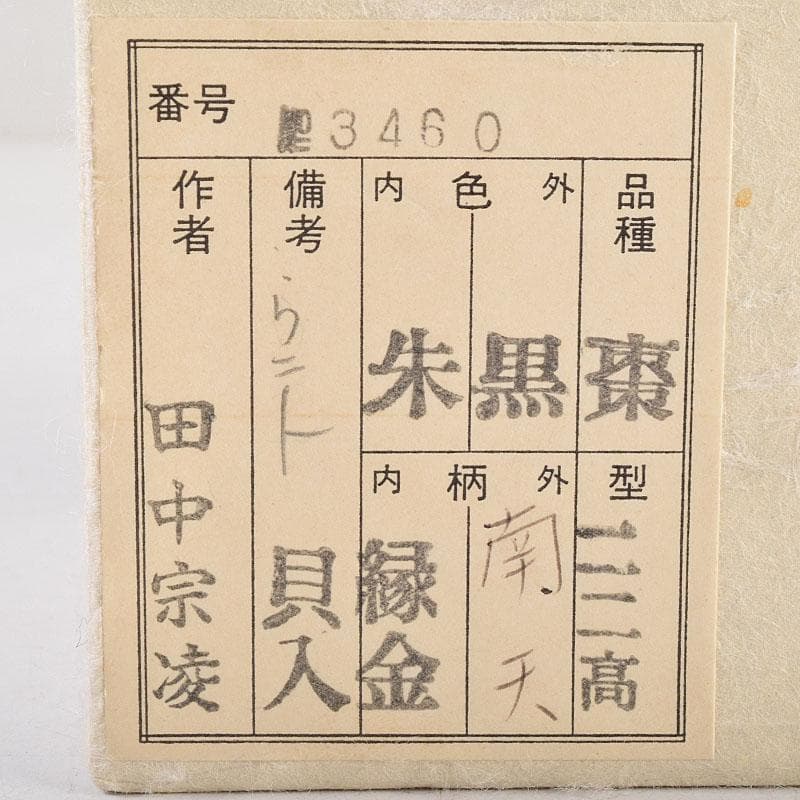 番号
3460
品種
棗
型
高
外 色 内
黒
朱
外 柄 内
南天
縁金
備考
貝入
作者
田中宗凌